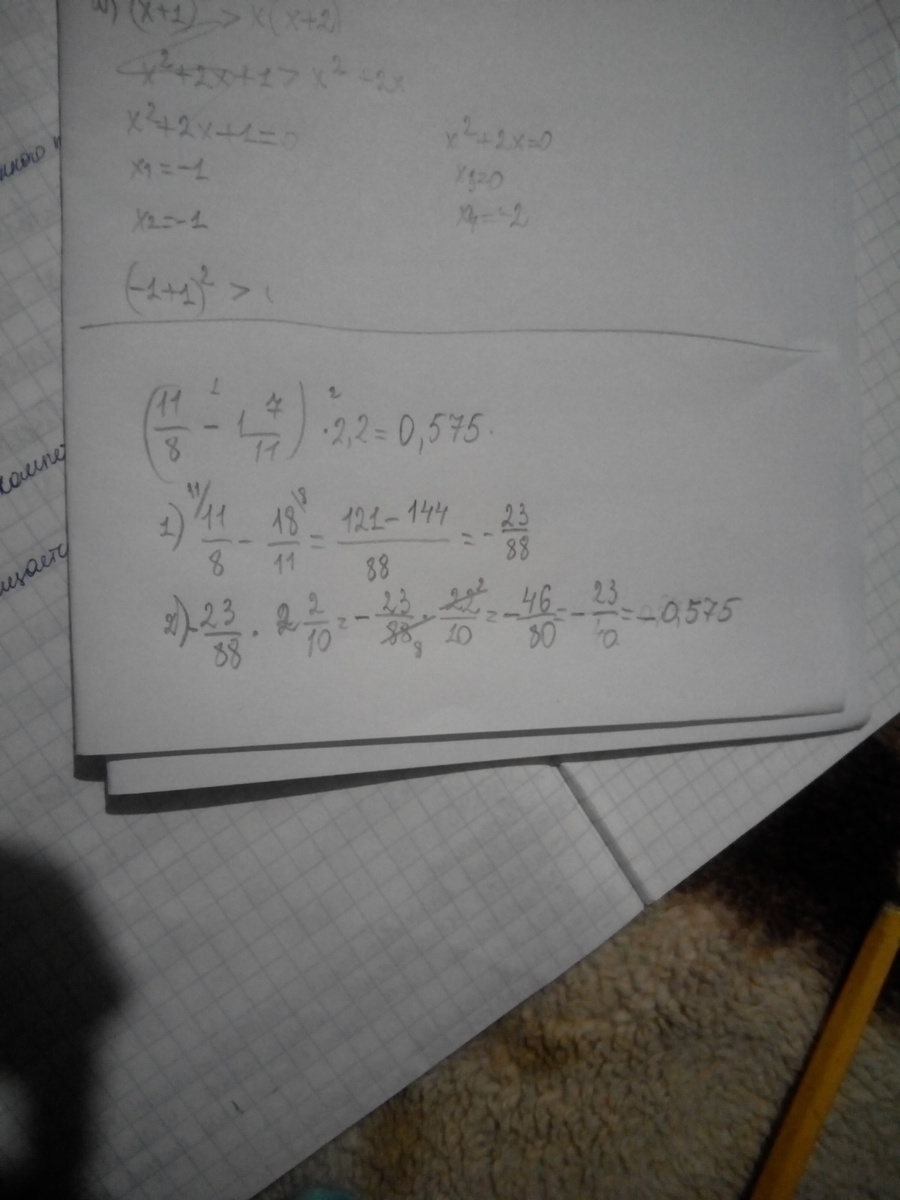 (x+1) > x(x+2)
x²+2x+1 > x²+2x
x²+2x+1=0 x²+2x=0
x1=-1 x3=0
x2=-1 x4=-2
(-1+1)² >
(11/8 - 1 7/11) · 2,2 = 0,575.
1) 11/8 - 18/11 = 121-144/88 = -23/88
2) -23/88 · 2 2/10 = -23/88 · 22/10 = -46/80 = -23/40 = -0,575